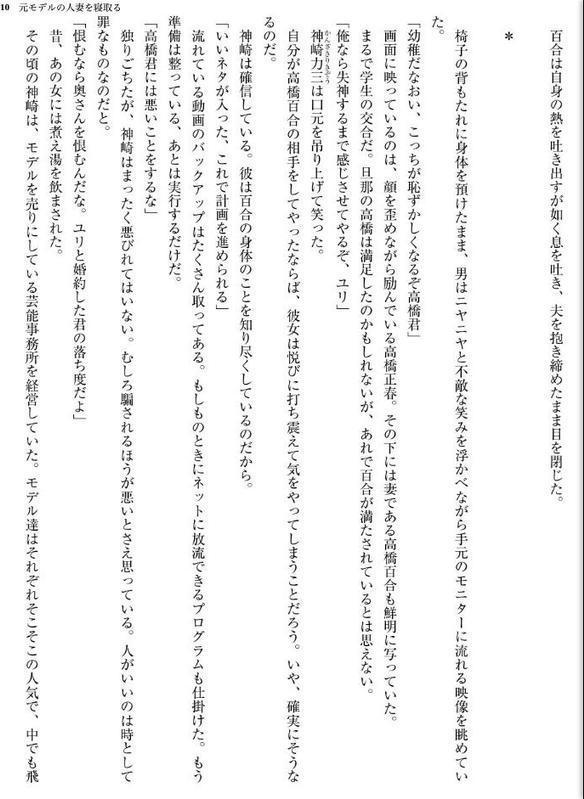 10　元モデルの人妻を寝取る
百合は自身の熱を吐き出すが如く息を吐き、夫を抱き締めたまま目を閉じた。
＊
椅子の背もたれに身体を預けたまま、男はニヤニヤと不敵な笑みを浮かべながら手元のモニターに流れる映像を眺めてい
た。
「幼稚だなおい、こっちが恥ずかしくなるぞ高橋君」
画面に映っているのは、顔を歪めながら励んでいる高橋正春。その下には妻である高橋百合も鮮明に写っていた。
まるで学生の交合だ。旦那の高橋は満足したのかもしれないが、あれで百合が満たされているとは思えない。
「俺なら失神するまで感じさせてやるぞ、ユリ」
神崎力三は口元を吊り上げて笑った。
自分が高橋百合の相手をしてやったならば、彼女は悦びに打ち震えて気をやってしまうことだろう。いや、確実にそうな
るのだ。
神崎は確信している。彼は百合の身体のことを知り尽くしているのだから。
「いいネタが入った、これで計画を進められる」
流れている動画のバックアップはたくさん取ってある。もしものときにネットに放流できるプログラムも仕掛けた。もう
準備は整っている、あとは実行するだけだ。
「高橋君には悪いことをするな」
独りごちたが、神崎はまったく悪びれてはいない。むしろ騙されるほうが悪いとさえ思っている。人がいいのは時として
罪なものなのだと。
「恨むなら奥さんを恨むんだな。ユリと婚約した君の落ち度だよ」
昔、あの女には煮え湯を飲まされた。
その頃の神崎は、モデルを売りにしている芸能事務所を経営していた。モデル達はそれぞれそこそこの人気で、中でも飛